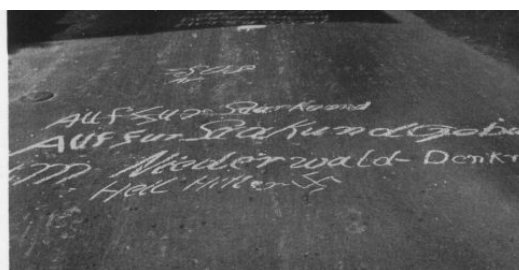 Auf zur Saarkund
Auf zur Saarkundgebu
Niederwald-Denkm
Heil Hitler 卐